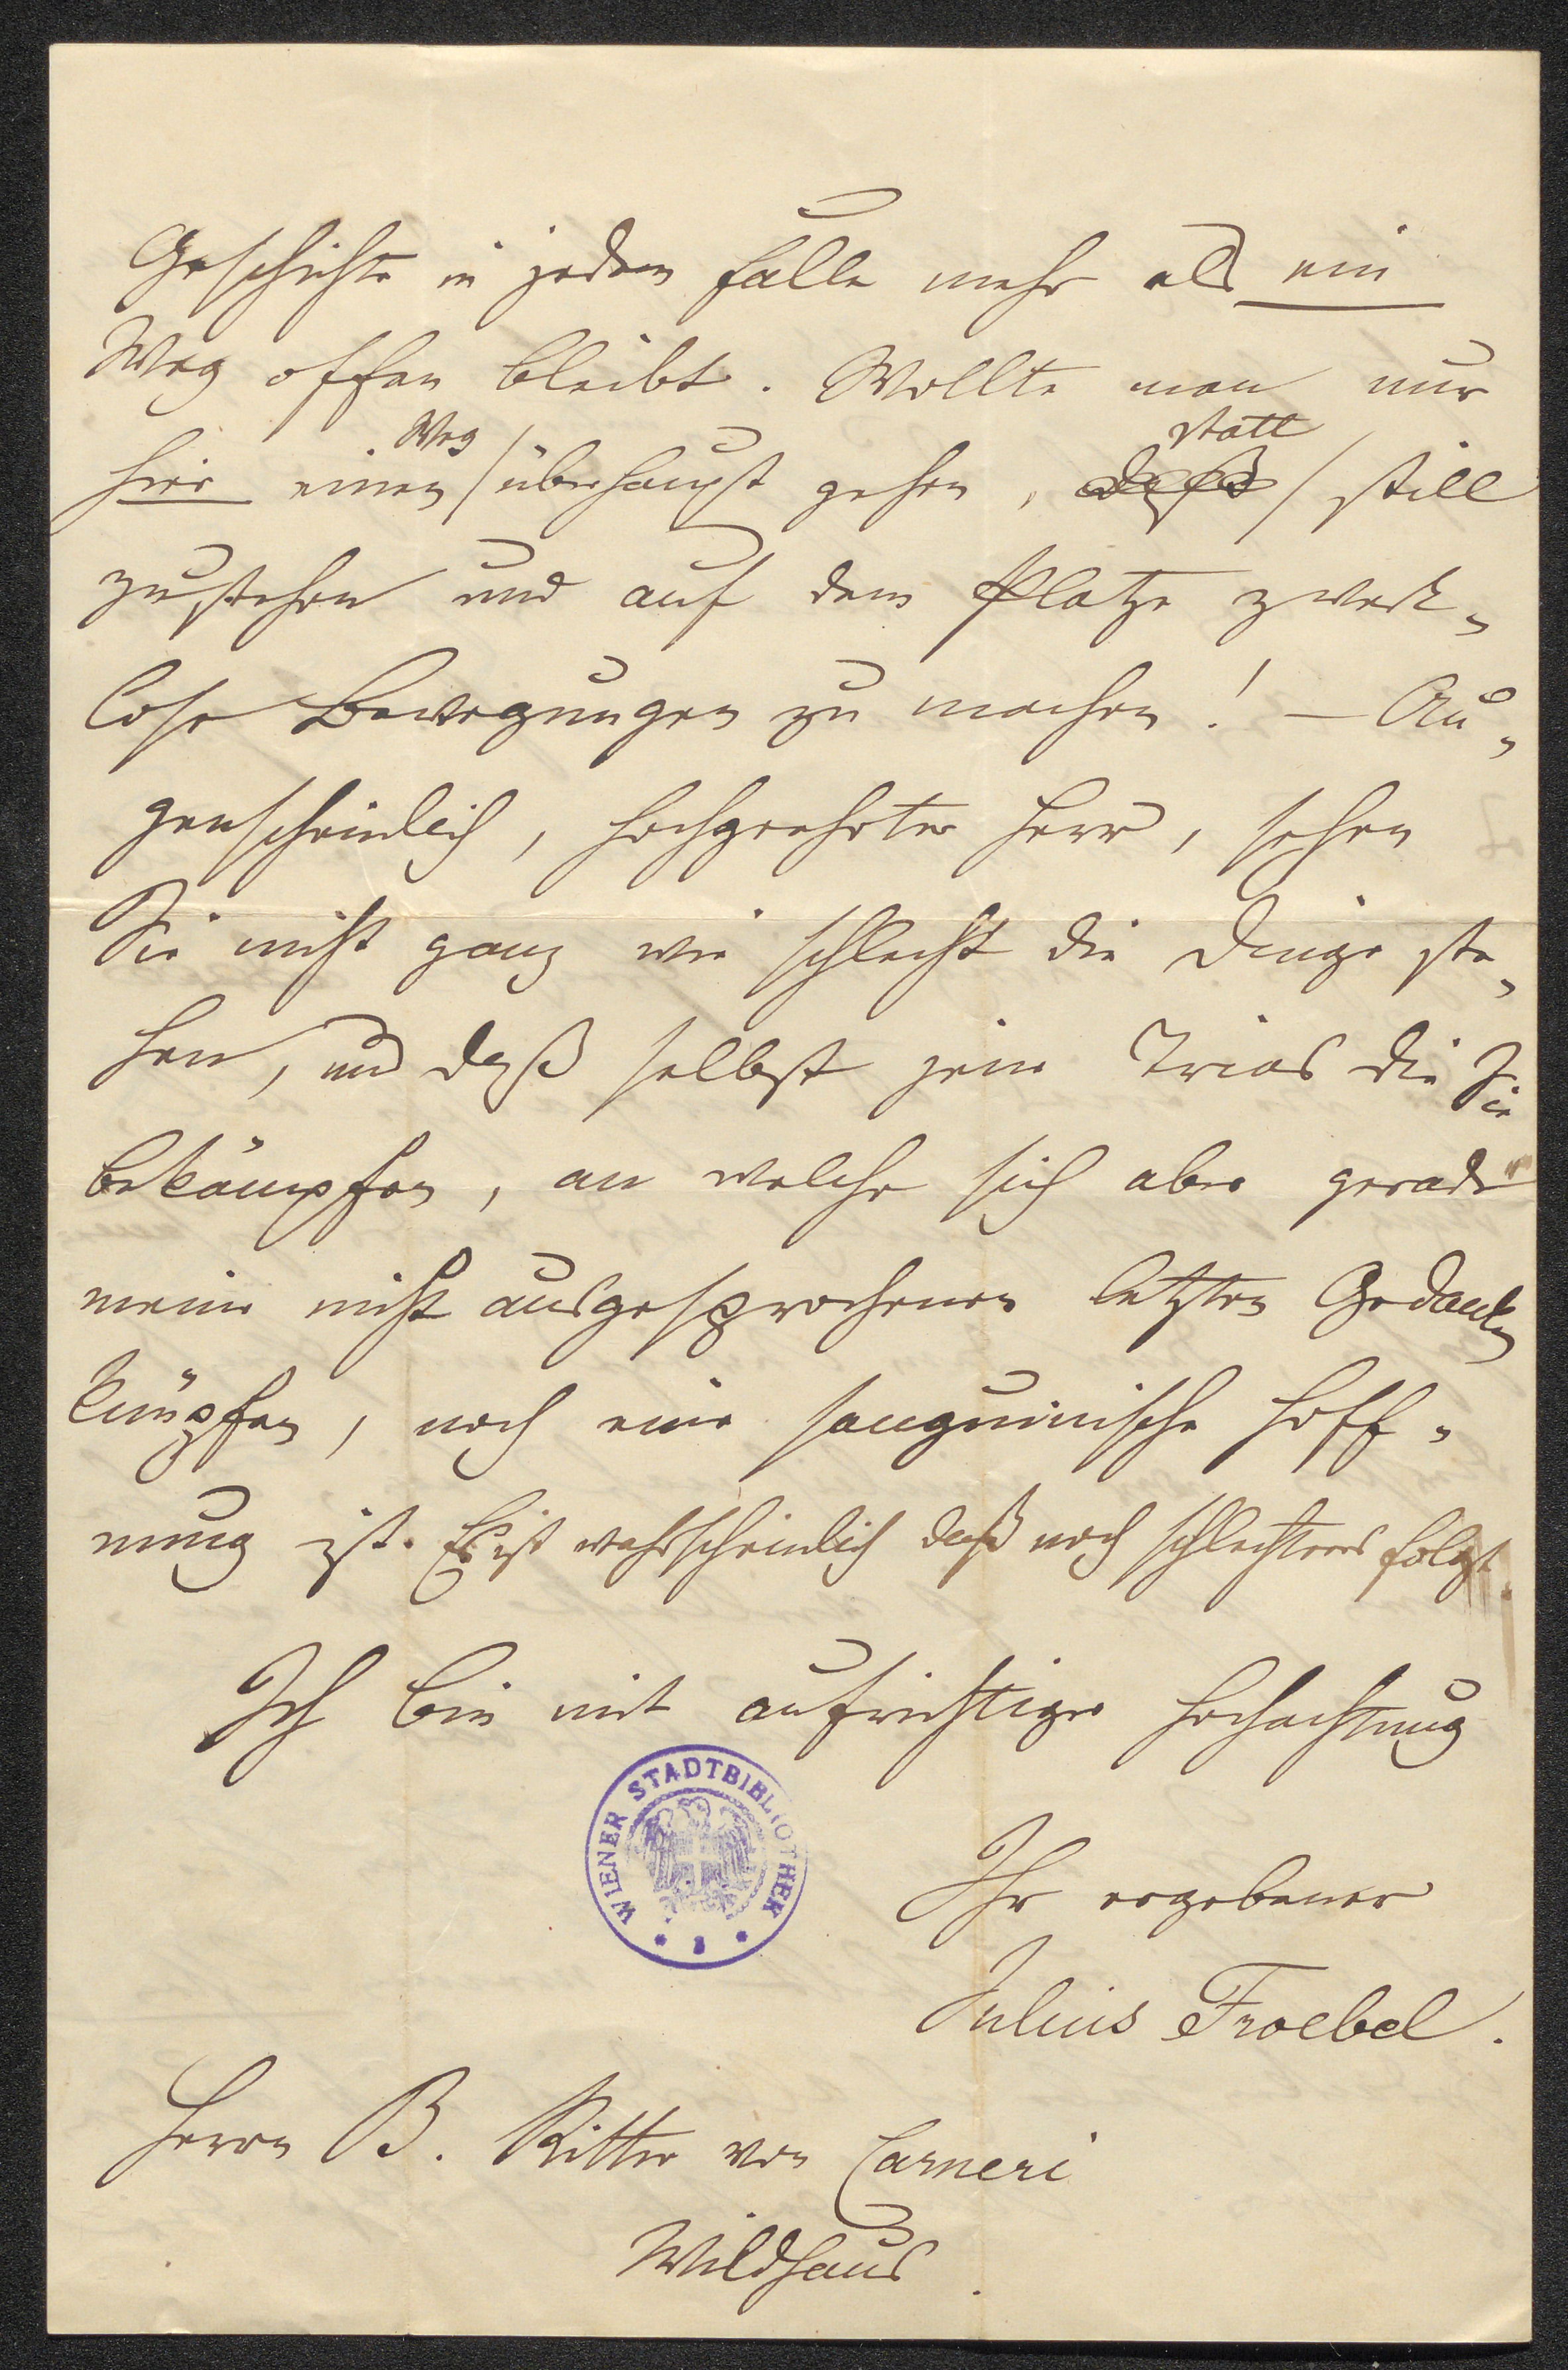 Geschichte in jedem Falle mehr als ein
Weg offen bleibt. Wollte man nur
hier einen Weg überhaupt gehen, daß statt still
zustehen und auf dem Platze zweck-
lose Bewegungen zu machen! — Au-
genscheinlich, hochgeehrter Herr, sehen
Sie nicht ganz wie schlecht die Dinge ste-
hen, und daß selbst jene Trias die Sie
bekämpfen, an welche sich aber gerade
meine nicht ausgesprochenen letzten Gedanken
knüpfen, noch eine sanguinische Hoff-
nung ist. Es ist wahrscheinlich daß noch schlechteres folgt.
Ich bin mit aufrichtiger Hochachtung
Ihr ergebener
Julius Froebel.
Herrn B. Ritter von Carneri
Wildhaus.
WIENER STADTBIBLIOTHEK